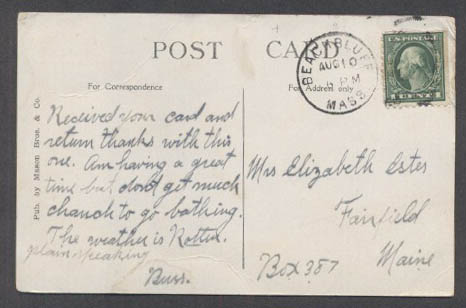 POST CARD
BEACH BLUFF
AUG 10
6 PM
MASS.
U.S. POSTAGE
1 CENT 1
For Correspondence
For Address only
Pub. by Mason Bros. & Co.
Received your card and
return thanks with this
one. Am having a great
time but don't get much
chanch to go bathing.
The weather is Rotten.
plain speaking
Burr.
Mrs Elizabeth Estes
Fairfield
Maine
Box 387